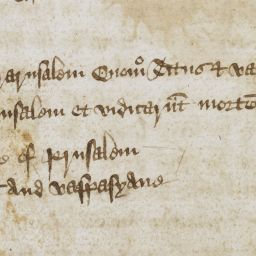 Jarusalem Quomo Titus & va
rusalem et vidicarut morte
of Jerusalem
and vaspasyane